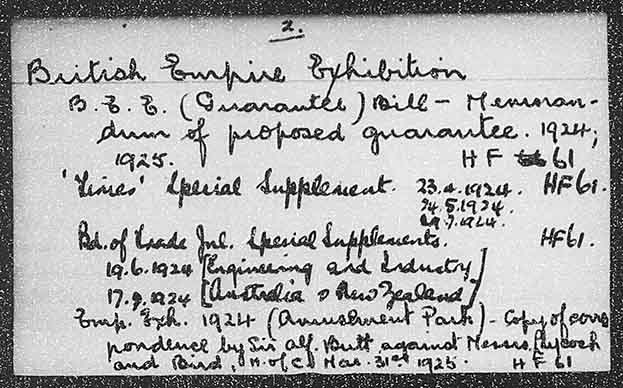 2.
British Empire Exhibition
B.E.E. (Guarantee) Bill - Memoran-
dum of proposed guarantee. 1924;
1925. HF 61
'Times' Special Supplement. 23.4.1924. HF61.
24.5.1924.
29.7.1924.
Bd. of Trade Jnl. Special Supplements. HF61.
19.6.1924 [Engineering and Industry]
17.9.1924 [Australia & New Zealand]
Emp. Exh. 1924 (Amusement Park) - Copy of corres
pondence by Sir Alf. Butt against Messrs
and Bird, H. of C. Mar. 31st 1925. HF 61